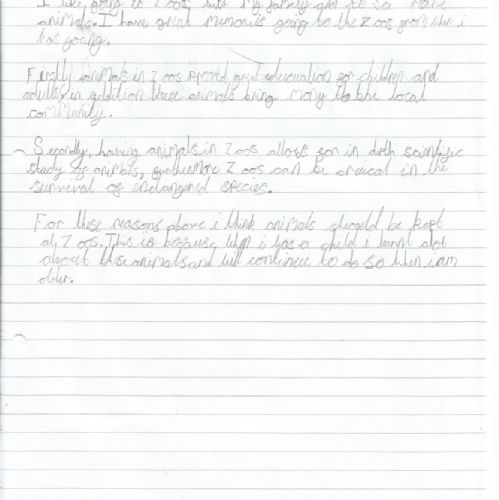 I like going to Zoos with my family and to see more
animals. I have great memories going to the Zoos from when i
was young.
Firstly animals in Zoos provid great education for children and
adults, in addition these animals bring mony to the local
community.
Secondly, having animals in Zoos allows for in deth scientific
study of animals, furthermore Zoos can be crucial in the
survival of endangered species.
For these reasons above i think animals should be kept
at Zoos. This is because when i was a child i learnt alot
about these animals and will continue to do so when i am
older.